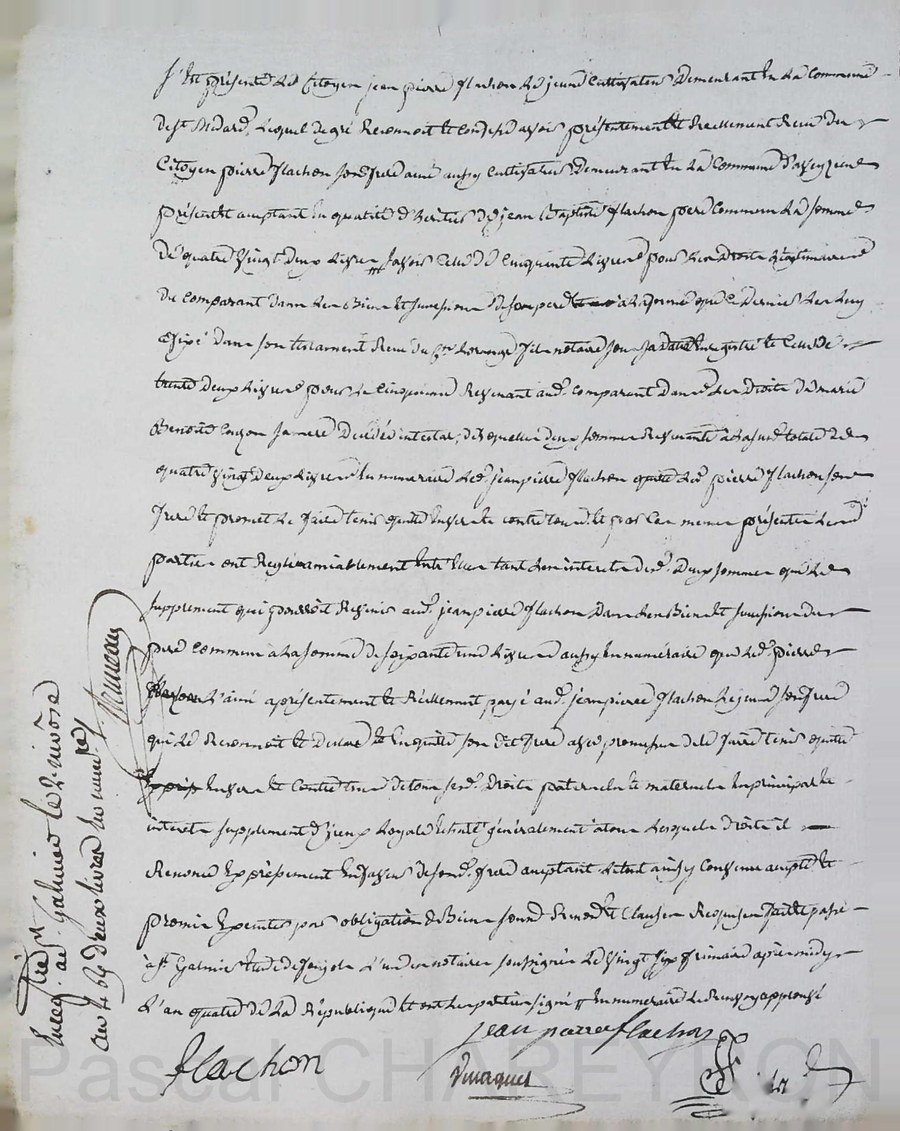 S'est présenté le Citoyen jean pierre flachon le jeune Cultivateur Demeurant En la Commune
de st Médard, lequel de gré Reconnoit et Confesse avoir présentement et Reellement Reçu du
Citoyen pierre flachon son frere ainé aussy Cultivateur Demeurant En la Commune d'aveyzieux
présent et acceptant En qualité d'heritier de jean Baptiste flachon pere Commun la somme
de quatre vingt deux livres savoir Celle de Cinquante livres pour les Droits légitimaires
du Comparant Dans les Biens et succession de son pere à la forme que ce dernier les luy
a fixé dans son testament Reçu du notaire sous sa datte Enregistré et Celle de
trente Deux livres pour le Cinquieme Revenant aud. Comparant Dans les Droits de marie
Benoite sa mere Décédée intestat, desquelles deux sommes Revenant à la susd. totale de
quatre vingt Deux livres En numeraire led. jean pierre flachon quitte led. pierre flachon son
frere et promet le faire tenir quitte Envers et contre tous et par Ces memes présentes lesd.
parties ont Reglé amiablement Entr'elles tant les interets desd. Deux sommes que le
supplement qui pourroit Revenir aud. jean pierre flachon Dans les Biens et succession du
pere Commun à la somme de soixante une livres aussy En numéraire que led. pierre
flachon l'ainé a présentement et Réellement payé aud. jean pierre flachon le jeune son frere
qui le Reconnoit et Declare et En quitte son dit frere avec promesse de le faire tenir quitte
Envers et Contre tous de tous sesd. Droits paternels et maternels En principal et
interets supplement d'iceux Royale et generalement à tous lesquels droits il
Renonce Expressement En faveur de sond. frere acceptant Et tout ainsy Convenu accepté et
promis Executer par obligation de Biens soumis. Renon. et Clauses Requises fait et passé
à st Galmier Etude de l'un des notaires soussignés le vingt six frimaire après midy
L'an quatre de la République et ont les parties signé En numeraire le Renvoy approuvé
jean pierre flachon
flachon
Enreg. à st Galmier le 2 nivose
an 4